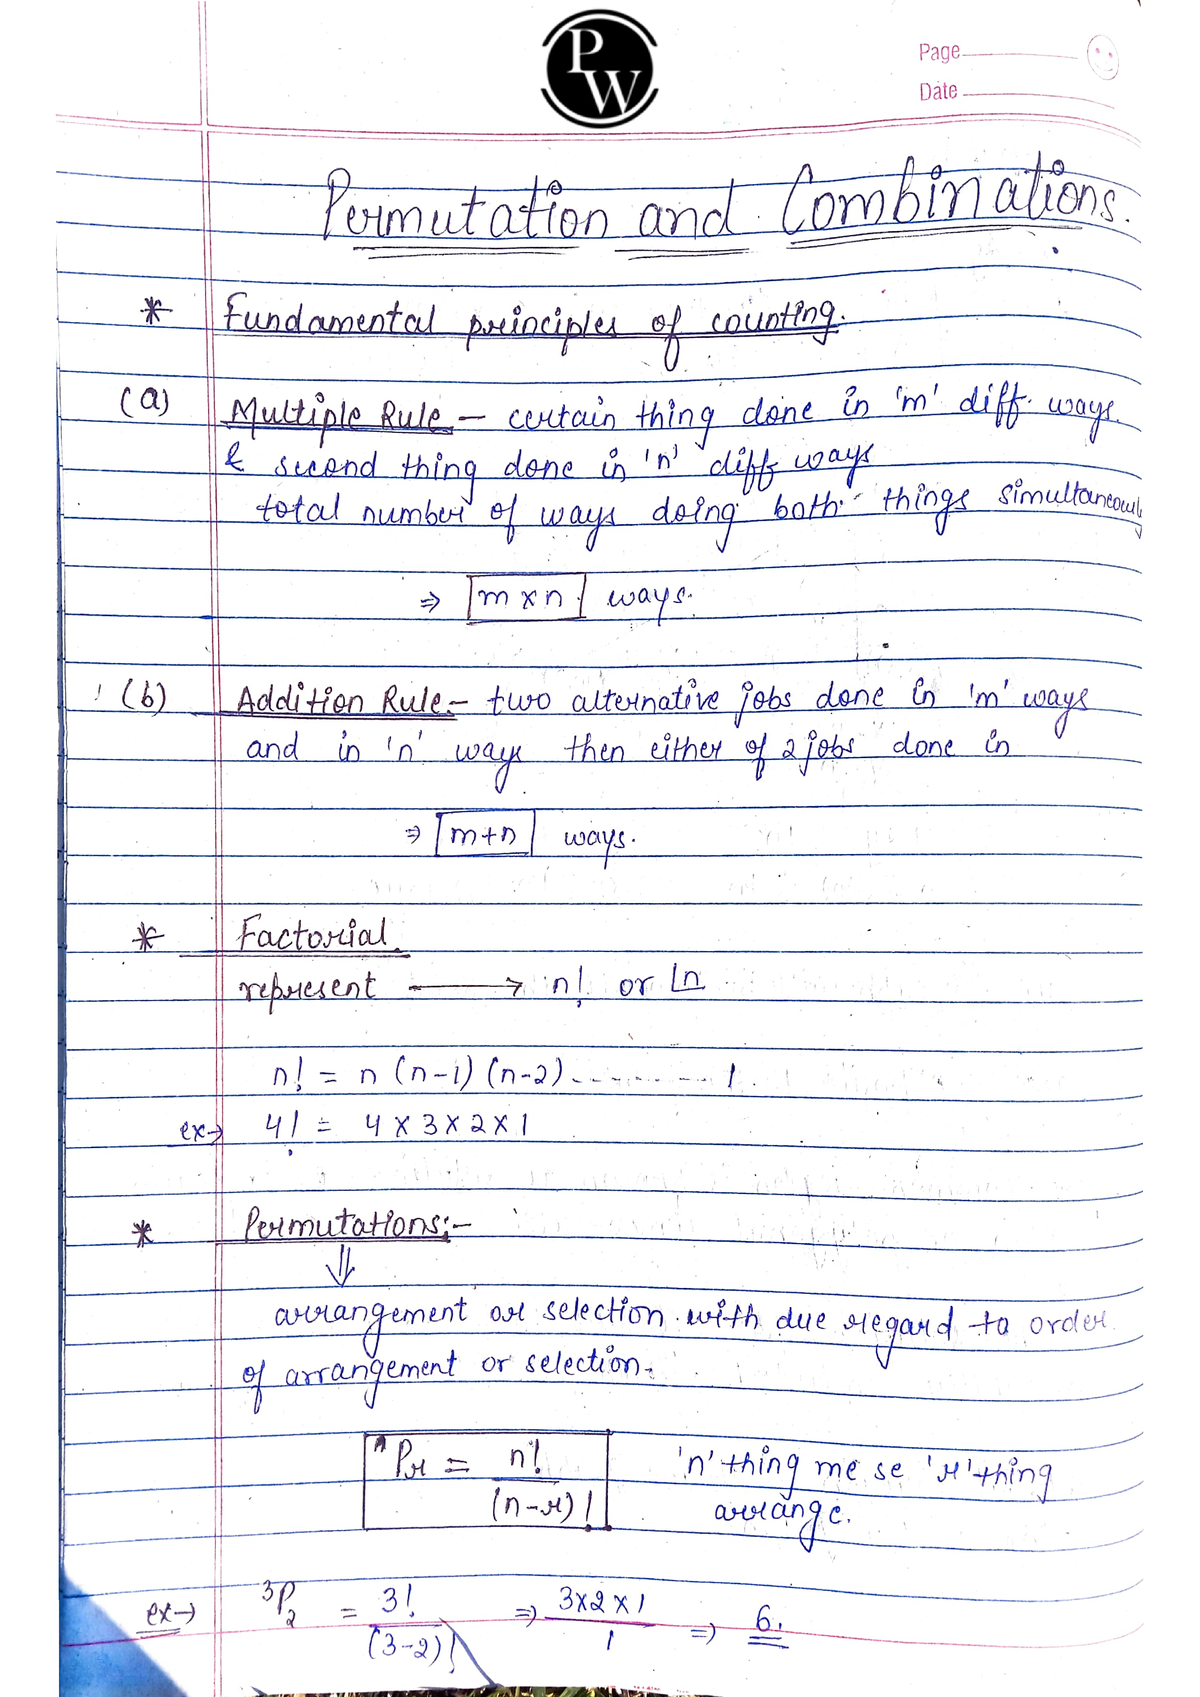 PW
Page
Date
Permutation and Combinations.
* Fundamental principles of counting.
(a) Multiple Rule - certain thing done in 'm' diff. ways
& second thing done in 'n' diff ways
total number of ways doing both things simultaneously
⇒ m × n ways.
(b) Addition Rule:- two alternative jobs done in 'm' ways
and in 'n' ways then either of 2 jobs done in
⇒ m+n ways.
* Factorial
represent → n! or ⌊n
n! = n (n-1) (n-2) --------- 1.
ex→ 4! = 4 × 3 × 2 × 1
* Permutations:-
⇓
arrangement or selection with due regard to order
of arrangement or selection.
ⁿPr = n!/(n-r)! 'n' thing me se 'r' thing
arrange.
ex→ ³P₂ = 3!/(3-2)! ⇒ 3×2×1/1 ⇒ 6.